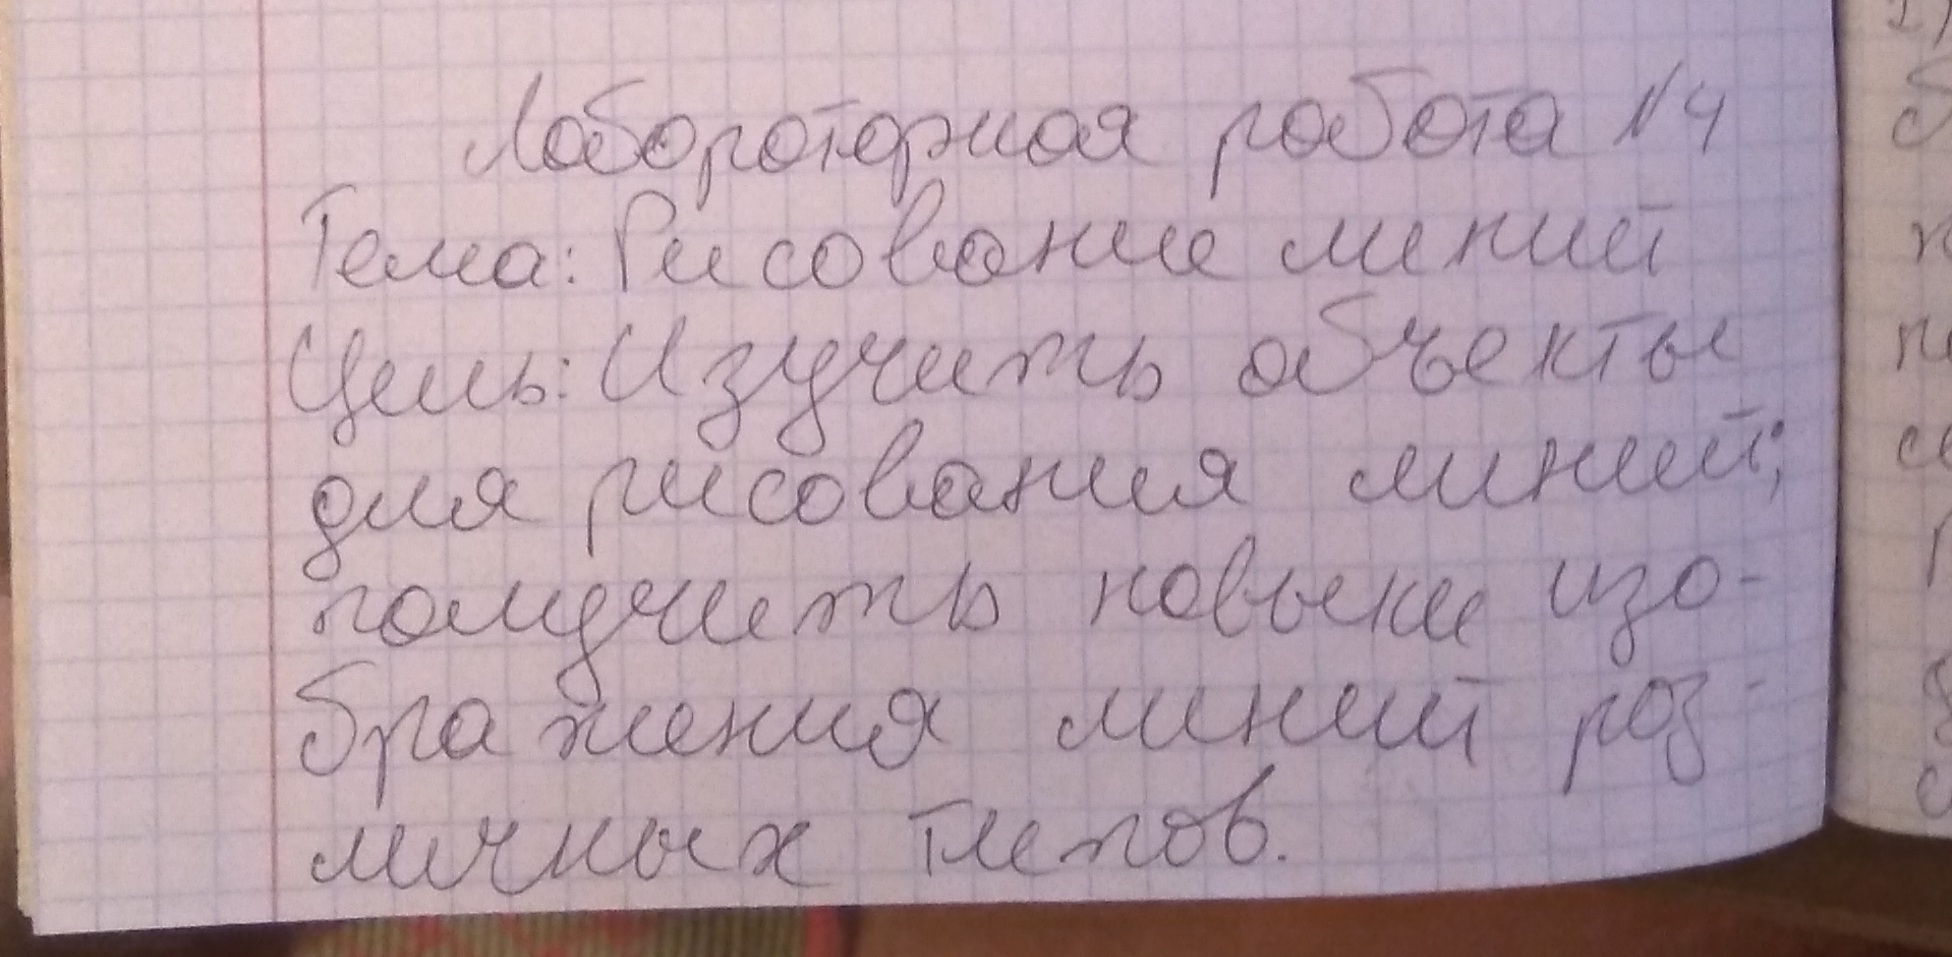 Лабораторная работа N4
Тема: Рисование линий
Цель: Изучить объекты
для рисования линий;
получить новыки изо-
бражения линий раз-
личных типов.